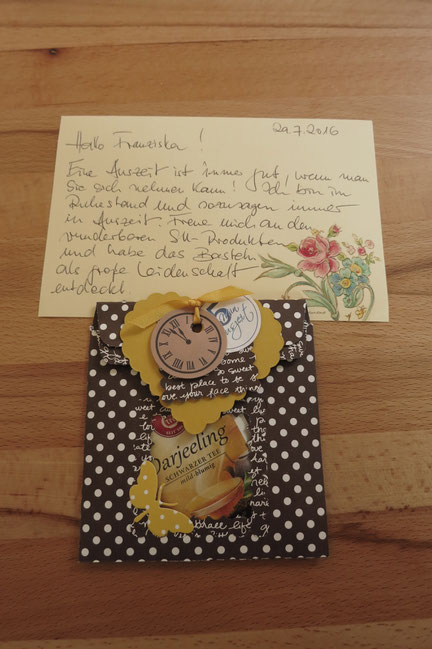 29.7.2016
Hallo Franziska!
Eine Auszeit ist immer gut, wenn man
sie sich nehmen kann! Ich bin im
Ruhestand und sozusagen immer
in Auszeit. Freue mich an den
wunderbaren SU-Produkten
und habe das Basteln
als große Leidenschaft
entdeckt.
so sweet
best place to be
love your face
Darjeeling
SCHWARZER TEE
mild-blumig